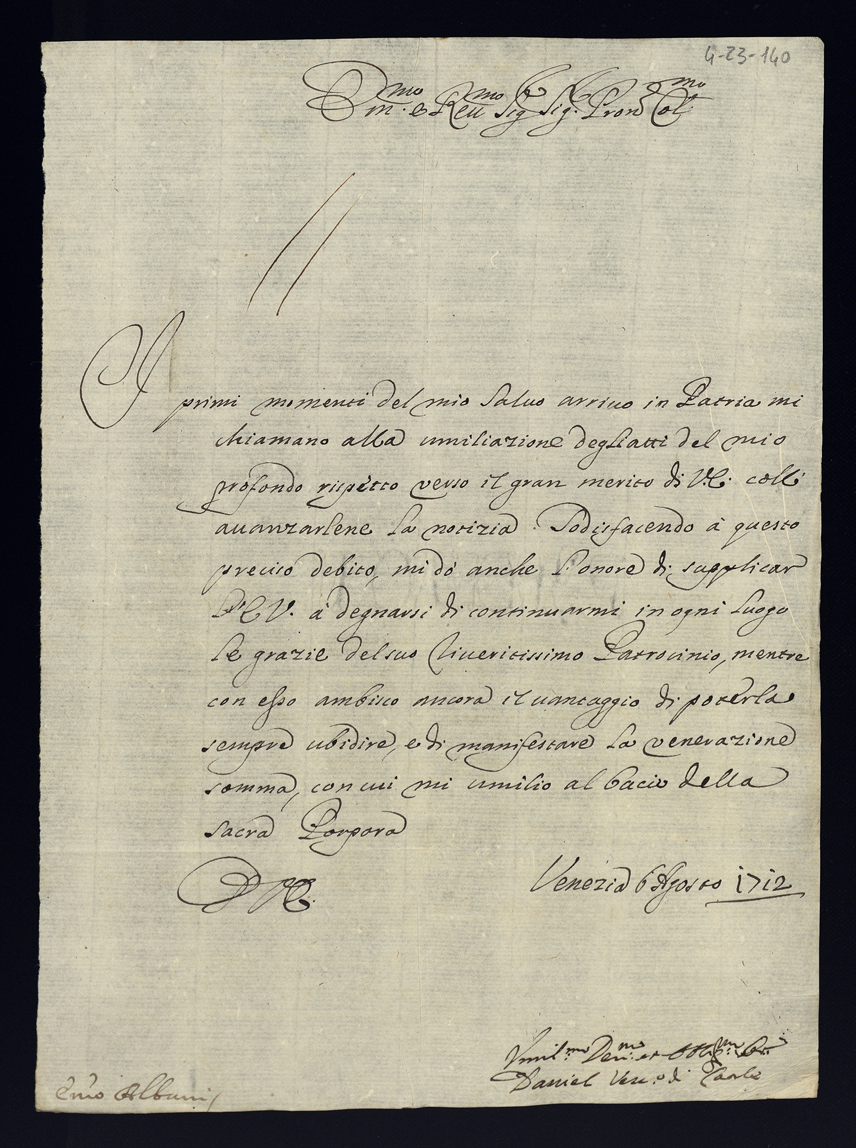 4-23-140
Em.mo e Reu.mo Sig. Sig. Pron Col.mo
I primi momenti del mio Saluo arriuo in Patria mi
chiamano alla umiliazione degliatti del mio
profondo rispetto verso il gran merito di V.E. coll'
auanzarlene la notizia. Sodisfacendo à questo
preciso debito, mi dò anche l'onore di supplicar
l'E.V. à degnarsi di continuarmi in ogni luogo
le grazie del suo riueritissimo Patrocinio, mentre
con esso ambisco ancora il uantaggio di poterla
sempre ubidire, e di manifestare la venerazione
somma, con cui mi umilio al bacio della
sacra Porpora
D. V. E.
Venezia 6 Agosto 1712
Vmil.mo Deu.mo et
Daniel Vesc.o di
Em̃o Albani